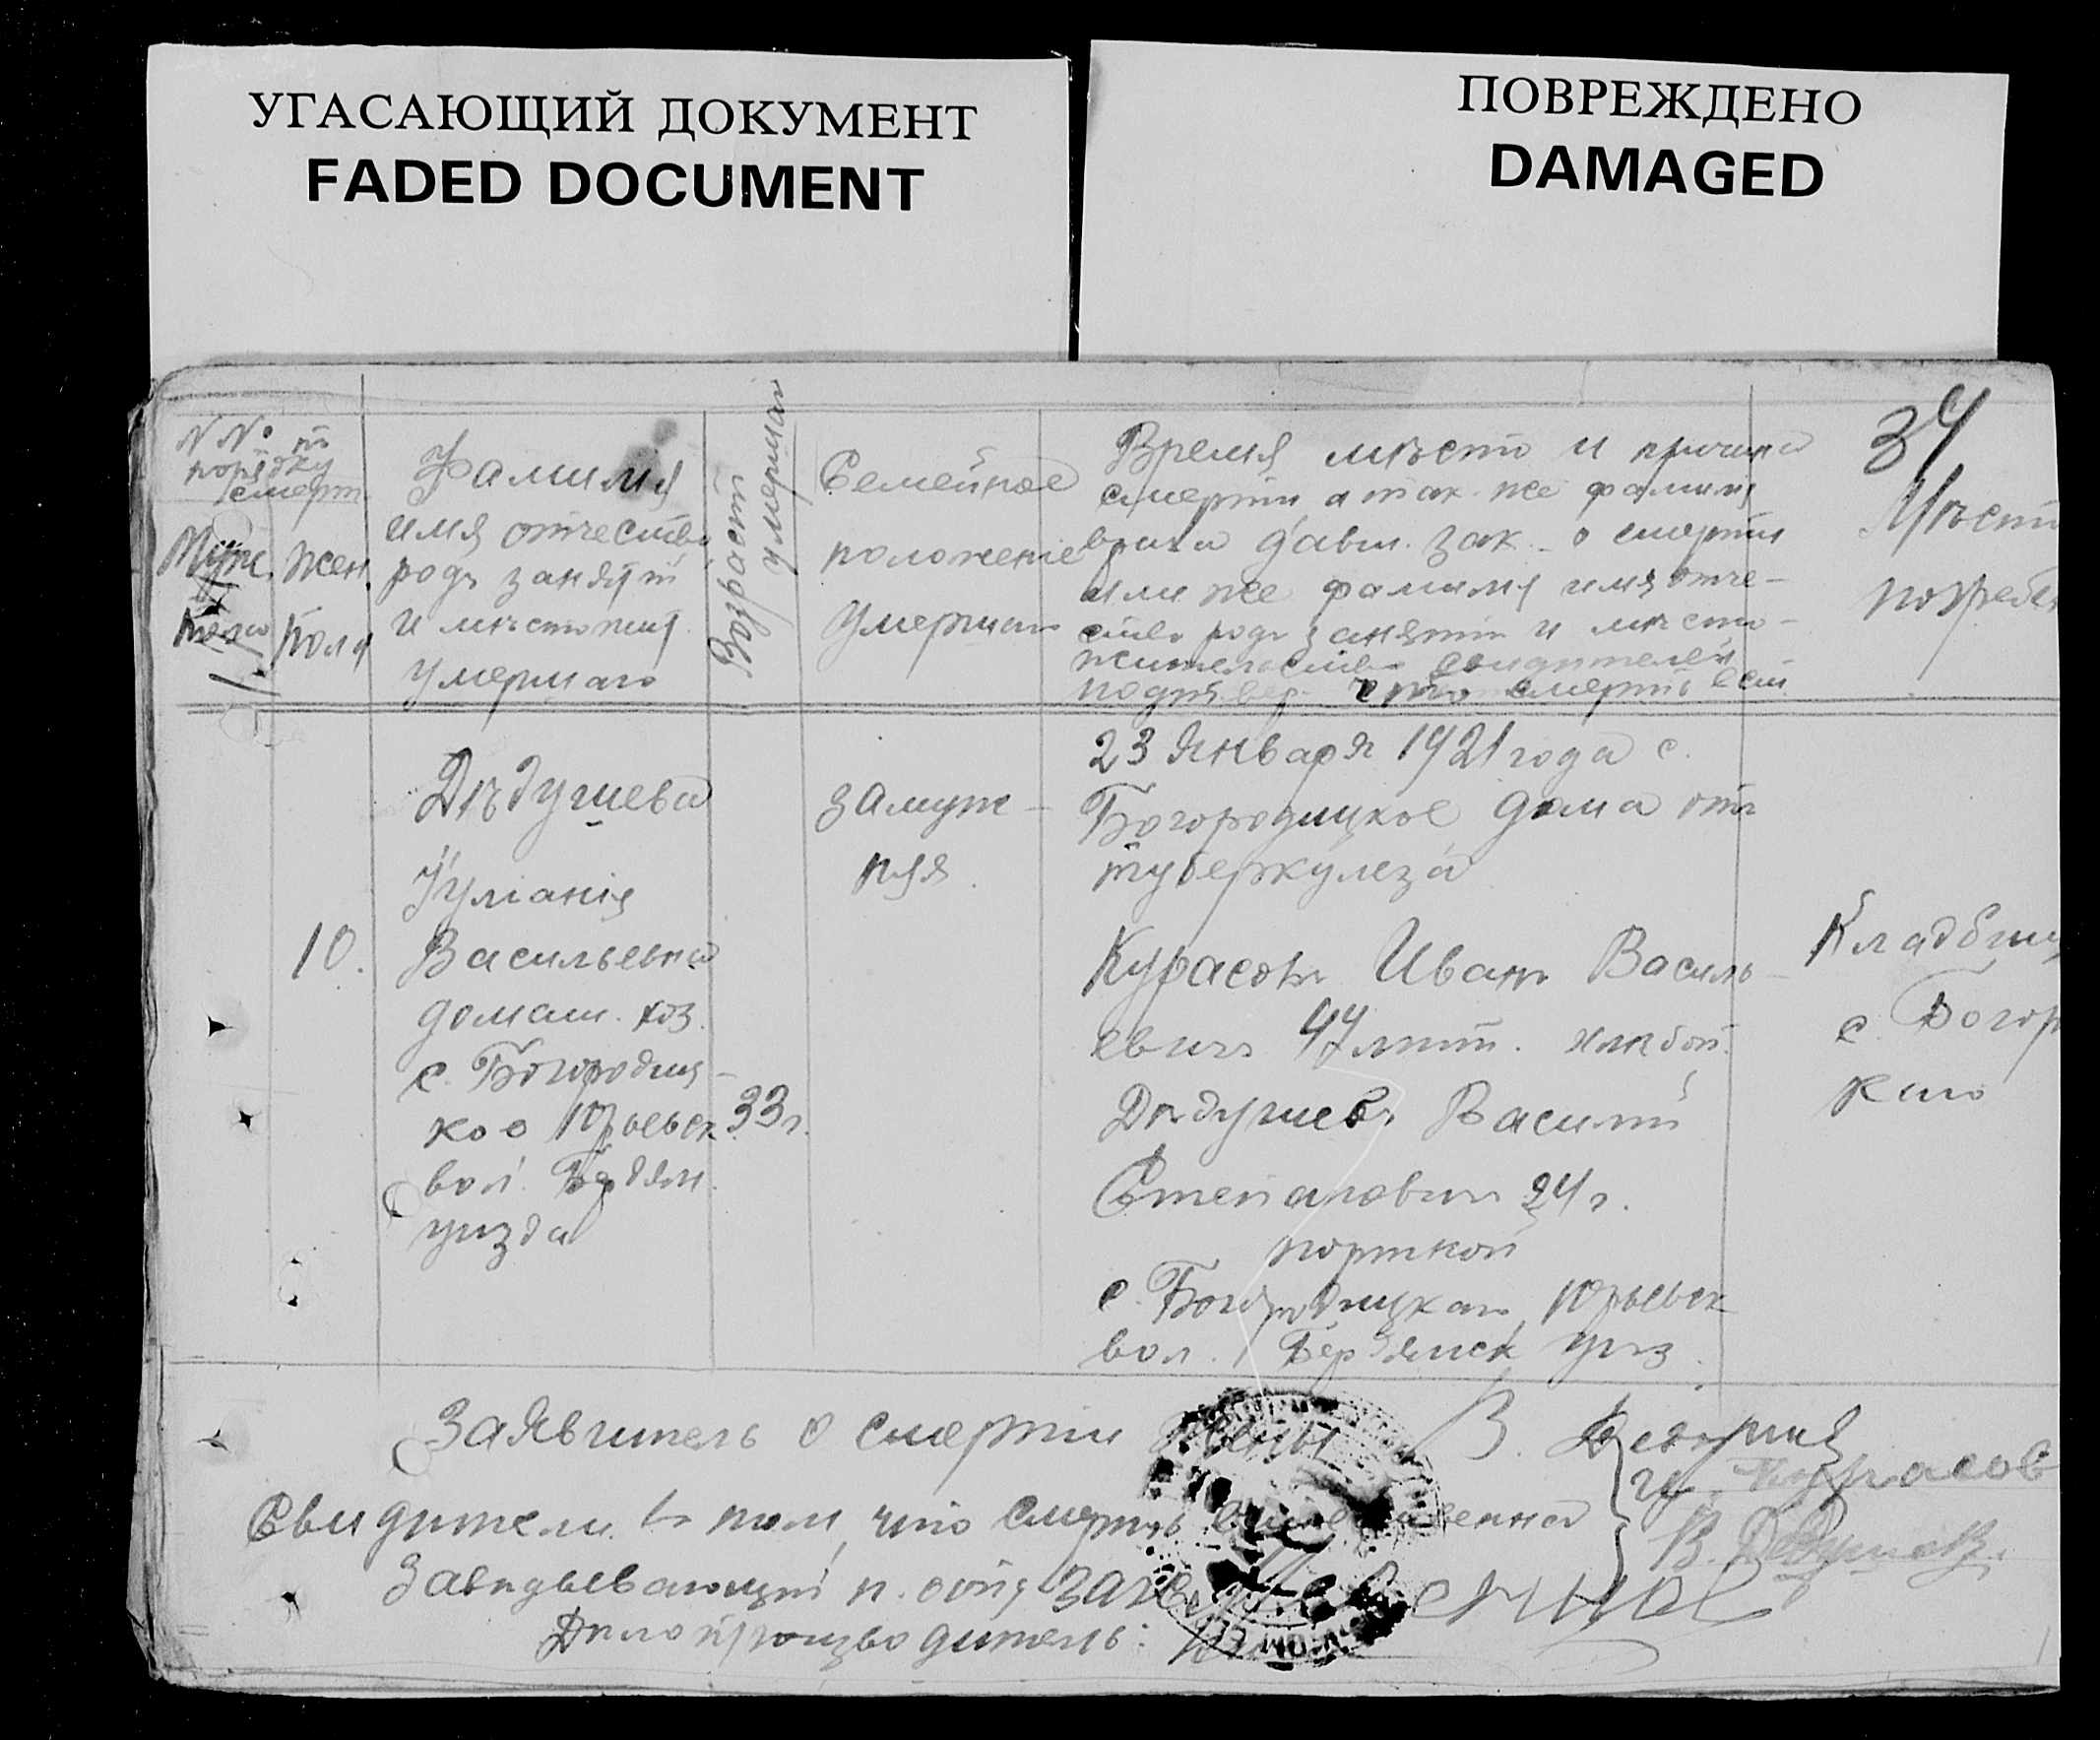 УГАСАЮЩИЙ ДОКУМЕНТ
FADED DOCUMENT
ПОВРЕЖДЕНО
DAMAGED
34
N No по
порядку
смерт.
Муж. Жен.
Пола Пола
Фамилия
имя отчество
родъ занятій
и мѣстожит
умершаго
Возрастъ
умершаго
Семейное
положеніе
умершаго
Время мѣсто и причина
смерти а так-же фамилія
врача давш. зак. о смерти
или же фамилія имя отче-
ство родъ занятій и мѣсто-
жительство свидителей
подтвер. что смерть ест
Мѣсто
погребен
10.
Дѣдушева
Іуліанія
Васильевна
домаш. хоз.
с. Богородиц-
кое Юрьевск.
вол. Бердян.
уѣзда
33 г.
замуж-
няя.
23 Января 1921 года с.
Богородицкое дома отъ
туберкулеза
Курасовъ Иванъ Василь-
евичъ 47 лѣт. хлѣбоп.
Дѣдушевъ Василій
Степановичъ 24 г.
портной
с. Богородицкаго Юрьевск
вол. Бердянск уѣз.
Кладбищ
с. Богор
каго
Заявитель о смерти жены В.
Свидители въ том, что смерть
И. Курасов
В. Дедушев
Завѣдывающій п. отд. ЗАГС
Дѣлопроизводитель: